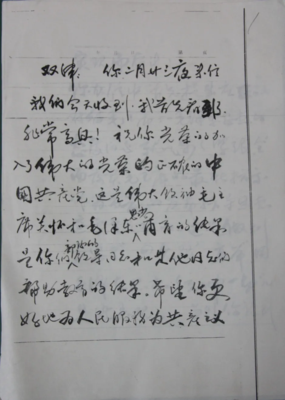 双印：你二月廿三夜来信
我们今天收到，我首先看
非常高兴！祝你光荣的加
入了伟大的光荣的正确的中
国共产党，这是伟大领袖毛主
席关怀和毛泽东思想育的结果
是你们的领导同志和其他同志的
帮助教育的结果。希望你更
好地为人民服务为共产主义